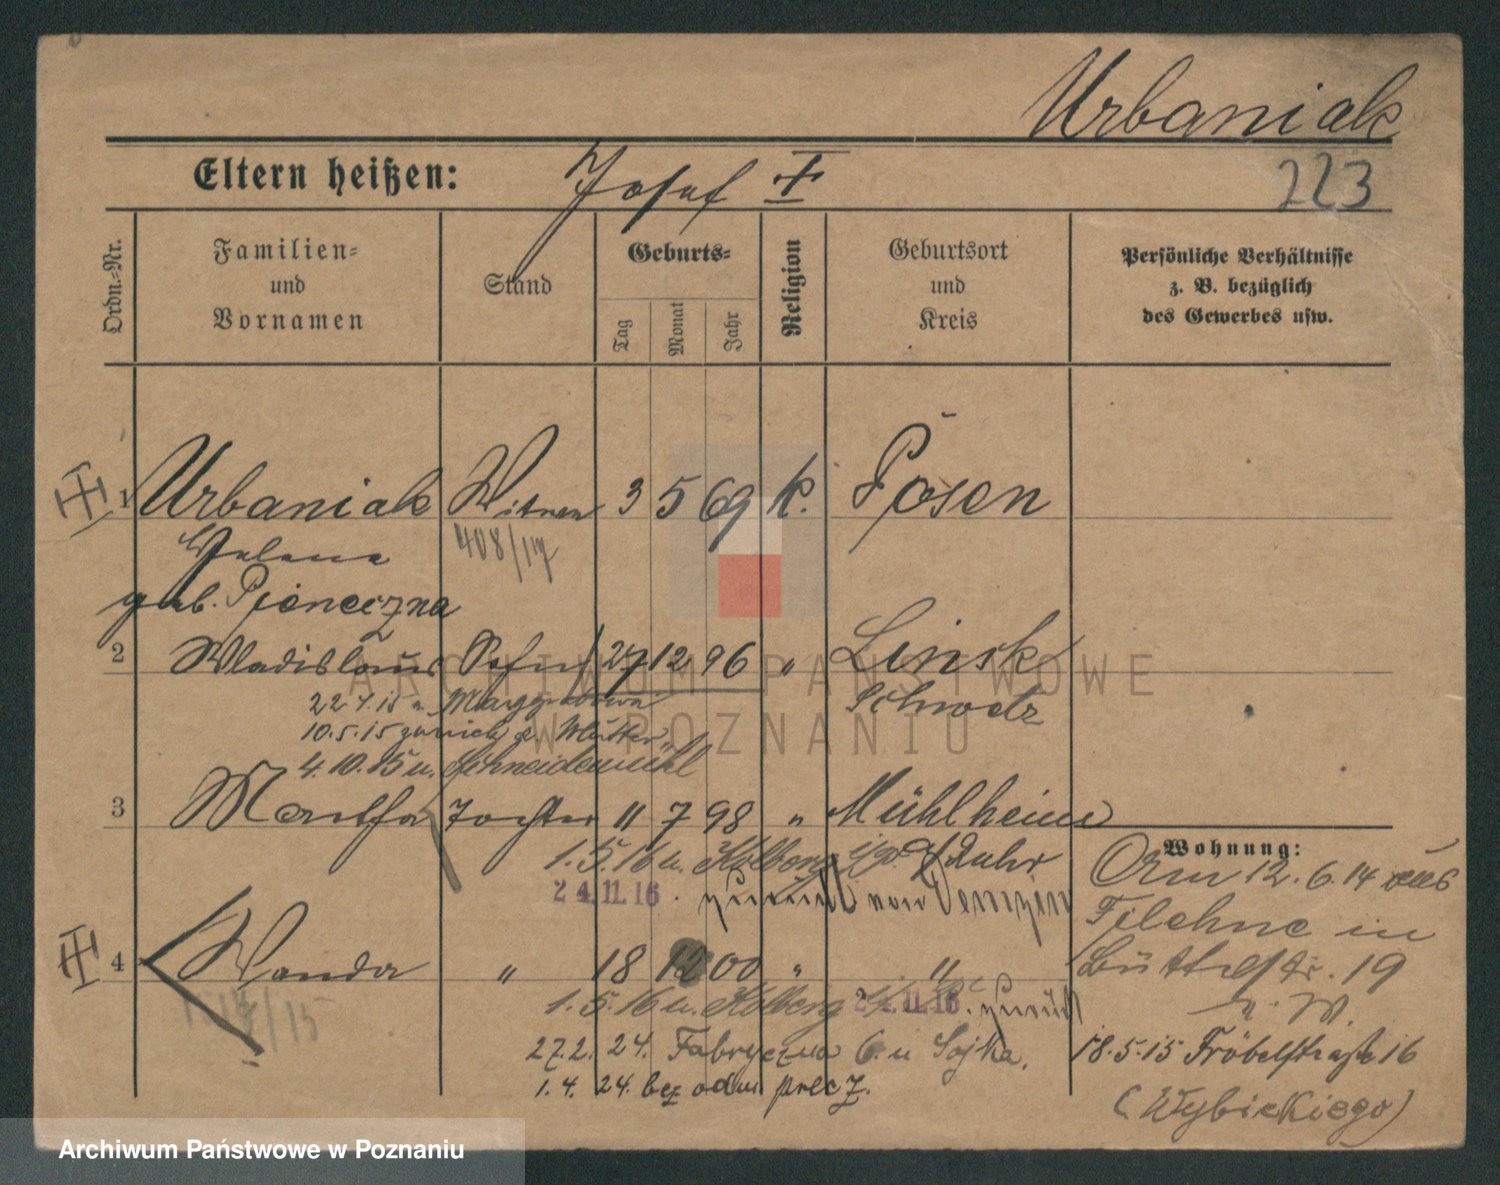 Urbaniak
Eltern heißen: Josef I
223
Ordn.-Nr.
Familien- und Vornamen
Stand
Geburts-
Tag Monat Jahr
Religion
Geburtsort und Kreis
Persönliche Verhältnisse z. B. bezüglich des Gewerbes usw.
1 Urbaniak Witwe 3 5 69 k. Posen
408/17
geb. Pioneczna
2 Wladislaus Sohn 27 12 96 " Linsk
Schwetz
22.4.15 n.
10.5.15 zurück z. Mutter
4.10.15 n. Schneidemühl
3 Martha Tochter 11 7 98 " Mühlheim
1.5.16 n. Kolberg a/Ruhr
24.11.16. zurück von
Wohnung:
Am 12.6.14 aus
Filehne in
19
4 Wanda " 18 12 00 " "
1.5.16 n. Kolberg 24.11.16. zurück
27.2.24. Fabryczna 6. u Sojka.
18.5.15 Fröbelstraße 16
1.4.24. bez odm precz.
(Wybickiego)
ARCHIWUM PAŃSTWOWE
W POZNANIU
Archiwum Państwowe w Poznaniu